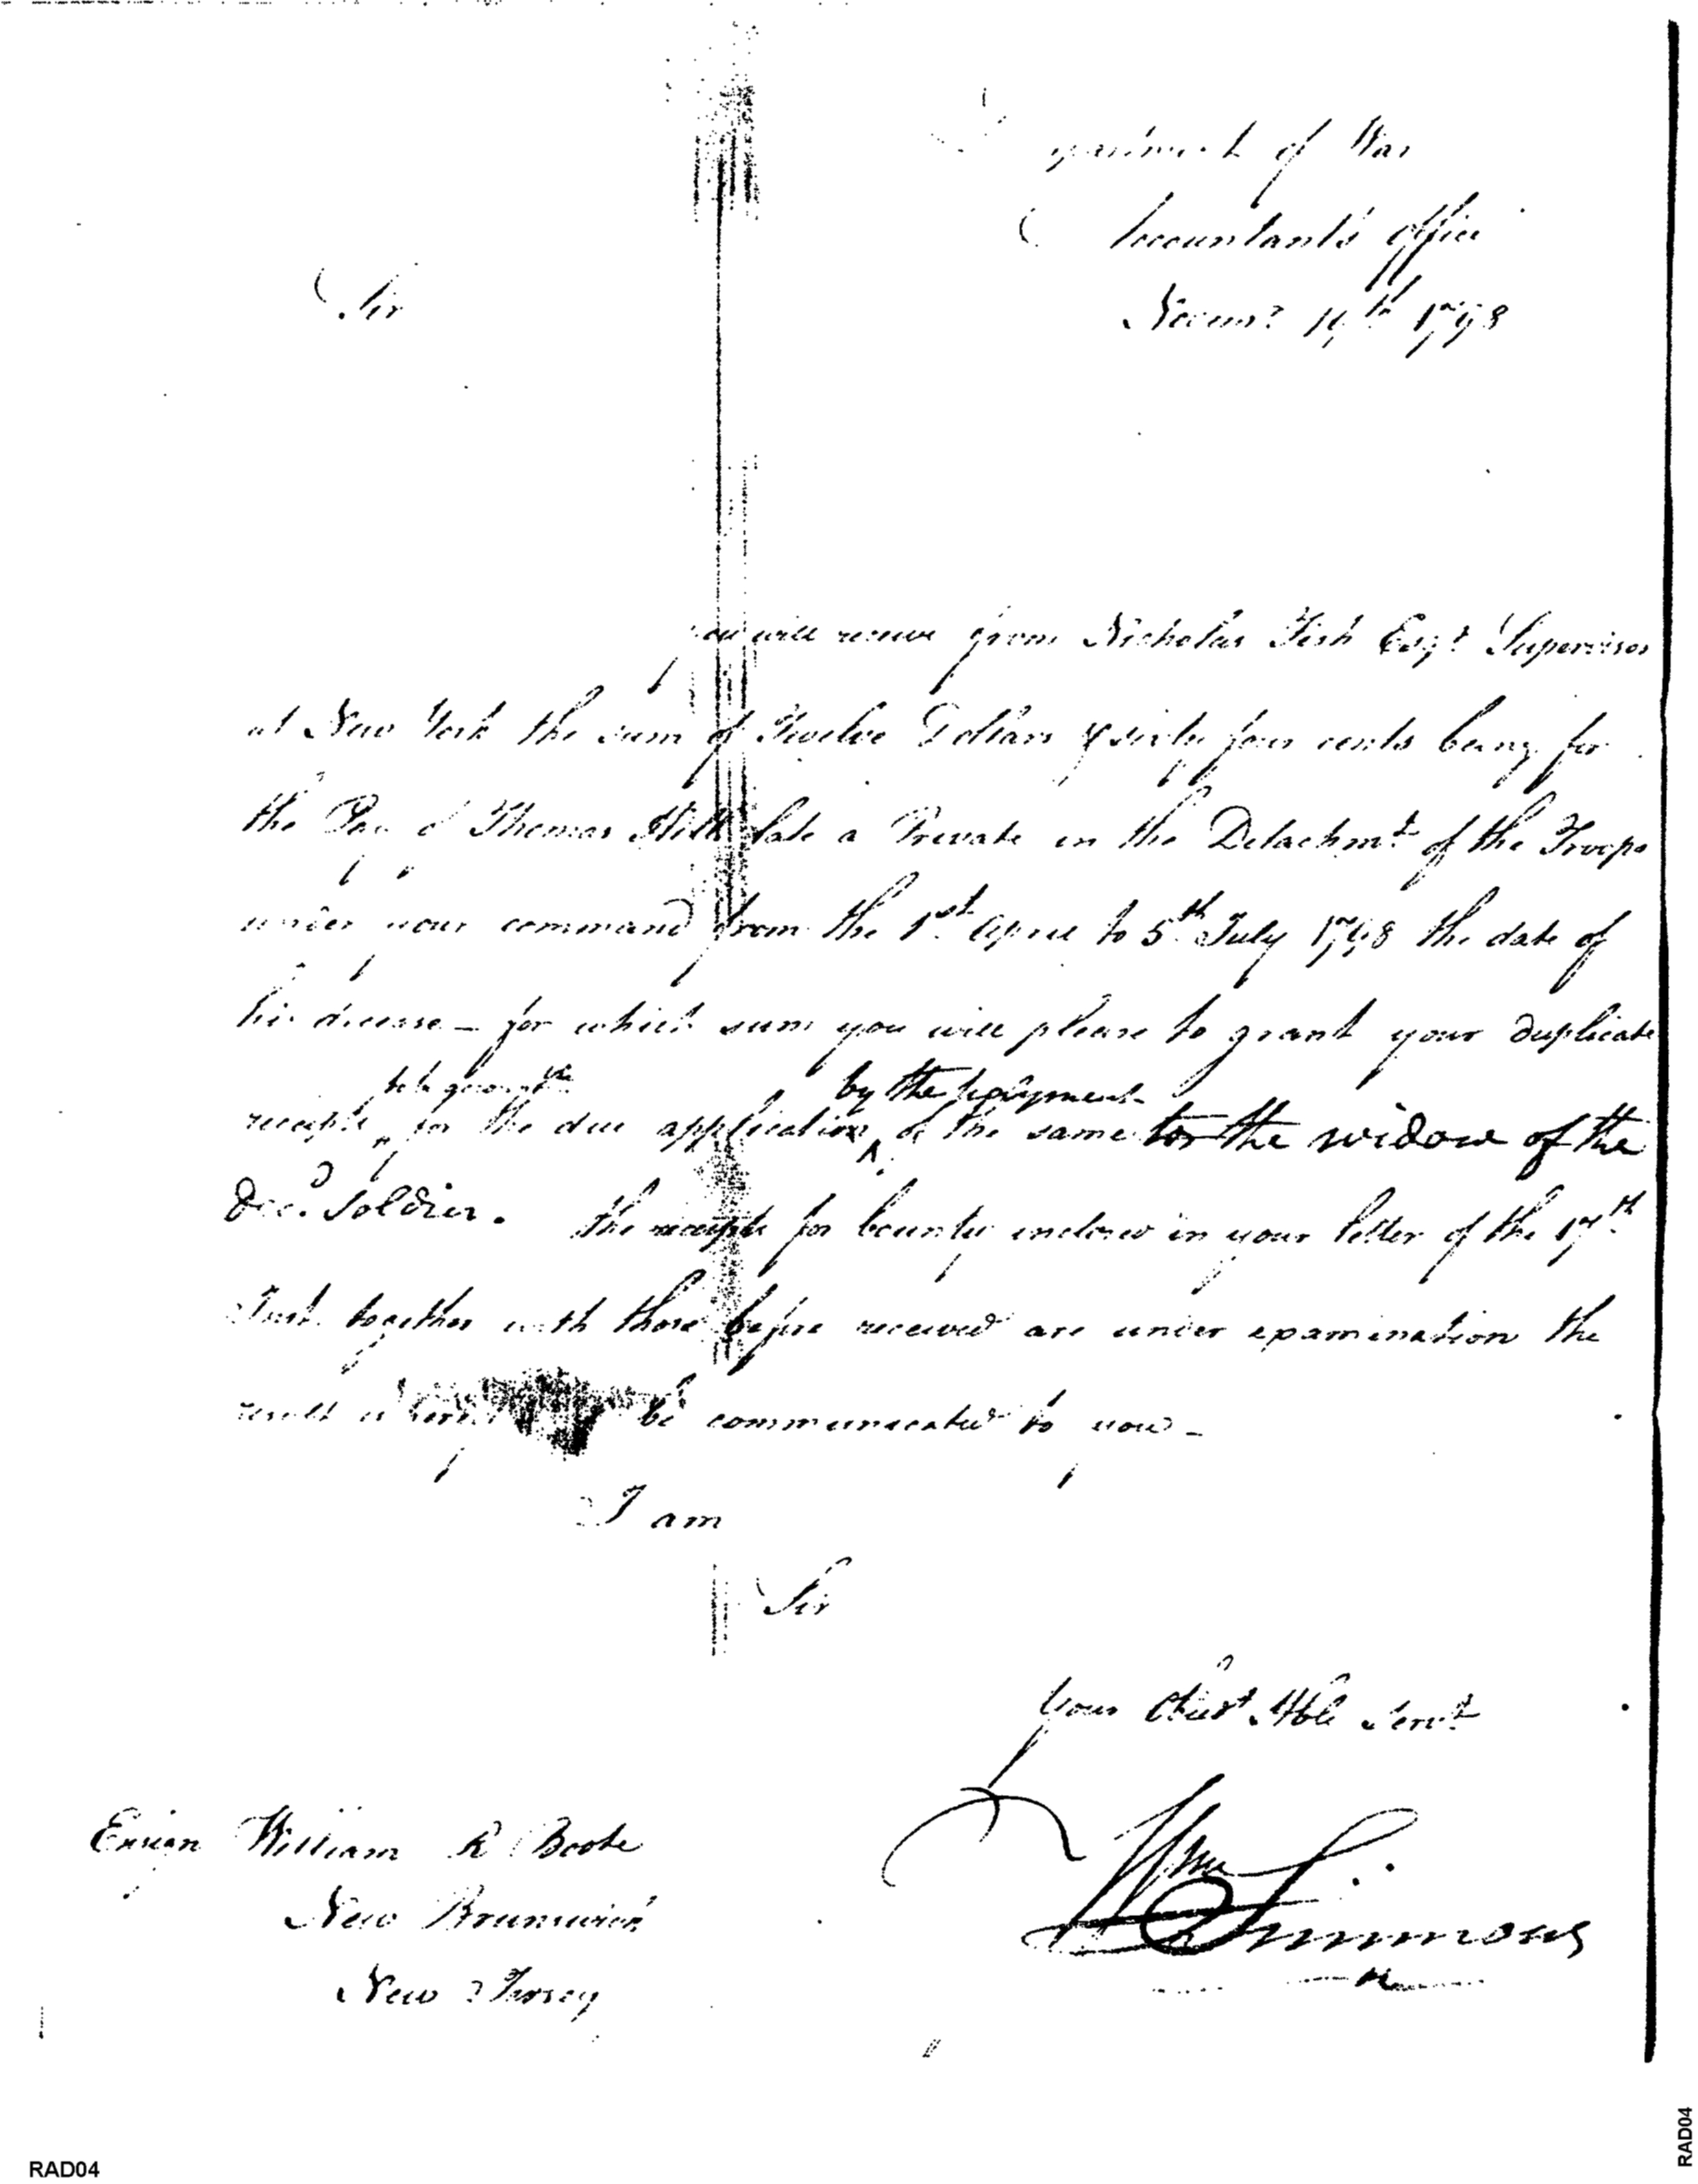 Department of War
Accountant's office
Sir
1798
you will receive from Nicholas Fish Esqr Supervisor
at New York the sum of Twelve Dollars & sixty four cents being for
the Pay of Thomas late a Private in the Detachmt of the Troops
under your command from the 1st April to 5th July 1798 the date of
his decease _ for which sum you will please to grant your duplicate
by the payment
receipts for the due application of the same to the widow of the
Decd Soldier. The receipts for bounty inclosed in your letter of the 17th
Inst. together with those before received are under examination the
result whereof be communicated to you _
I am
Sir
Your Obedt Hble Servt
Wm Simmons
Ensign William R Boote
New Brunswick
New Jersey
RAD04
RAD04